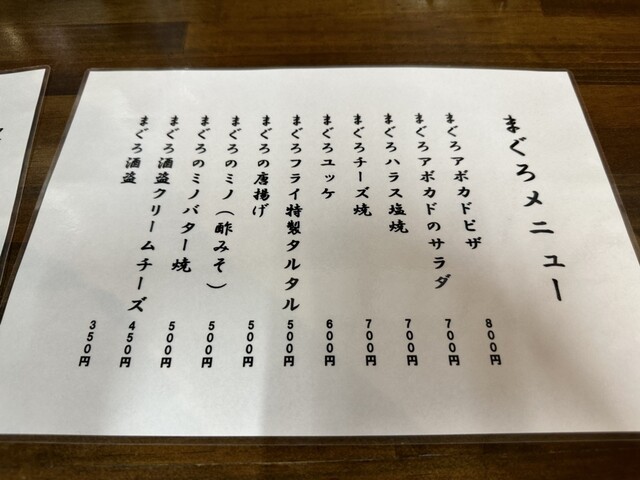 まぐろメニュー
まぐろアボカドピザ 800円
まぐろアボカドのサラダ 700円
まぐろハラス塩焼 700円
まぐろチーズ焼 700円
まぐろユッケ 600円
まぐろフライ特製タルタル 500円
まぐろの唐揚げ 500円
まぐろのミノ(酢みそ) 500円
まぐろのミノバター焼 500円
まぐろ酒盗クリームチーズ 450円
まぐろ酒盗 350円